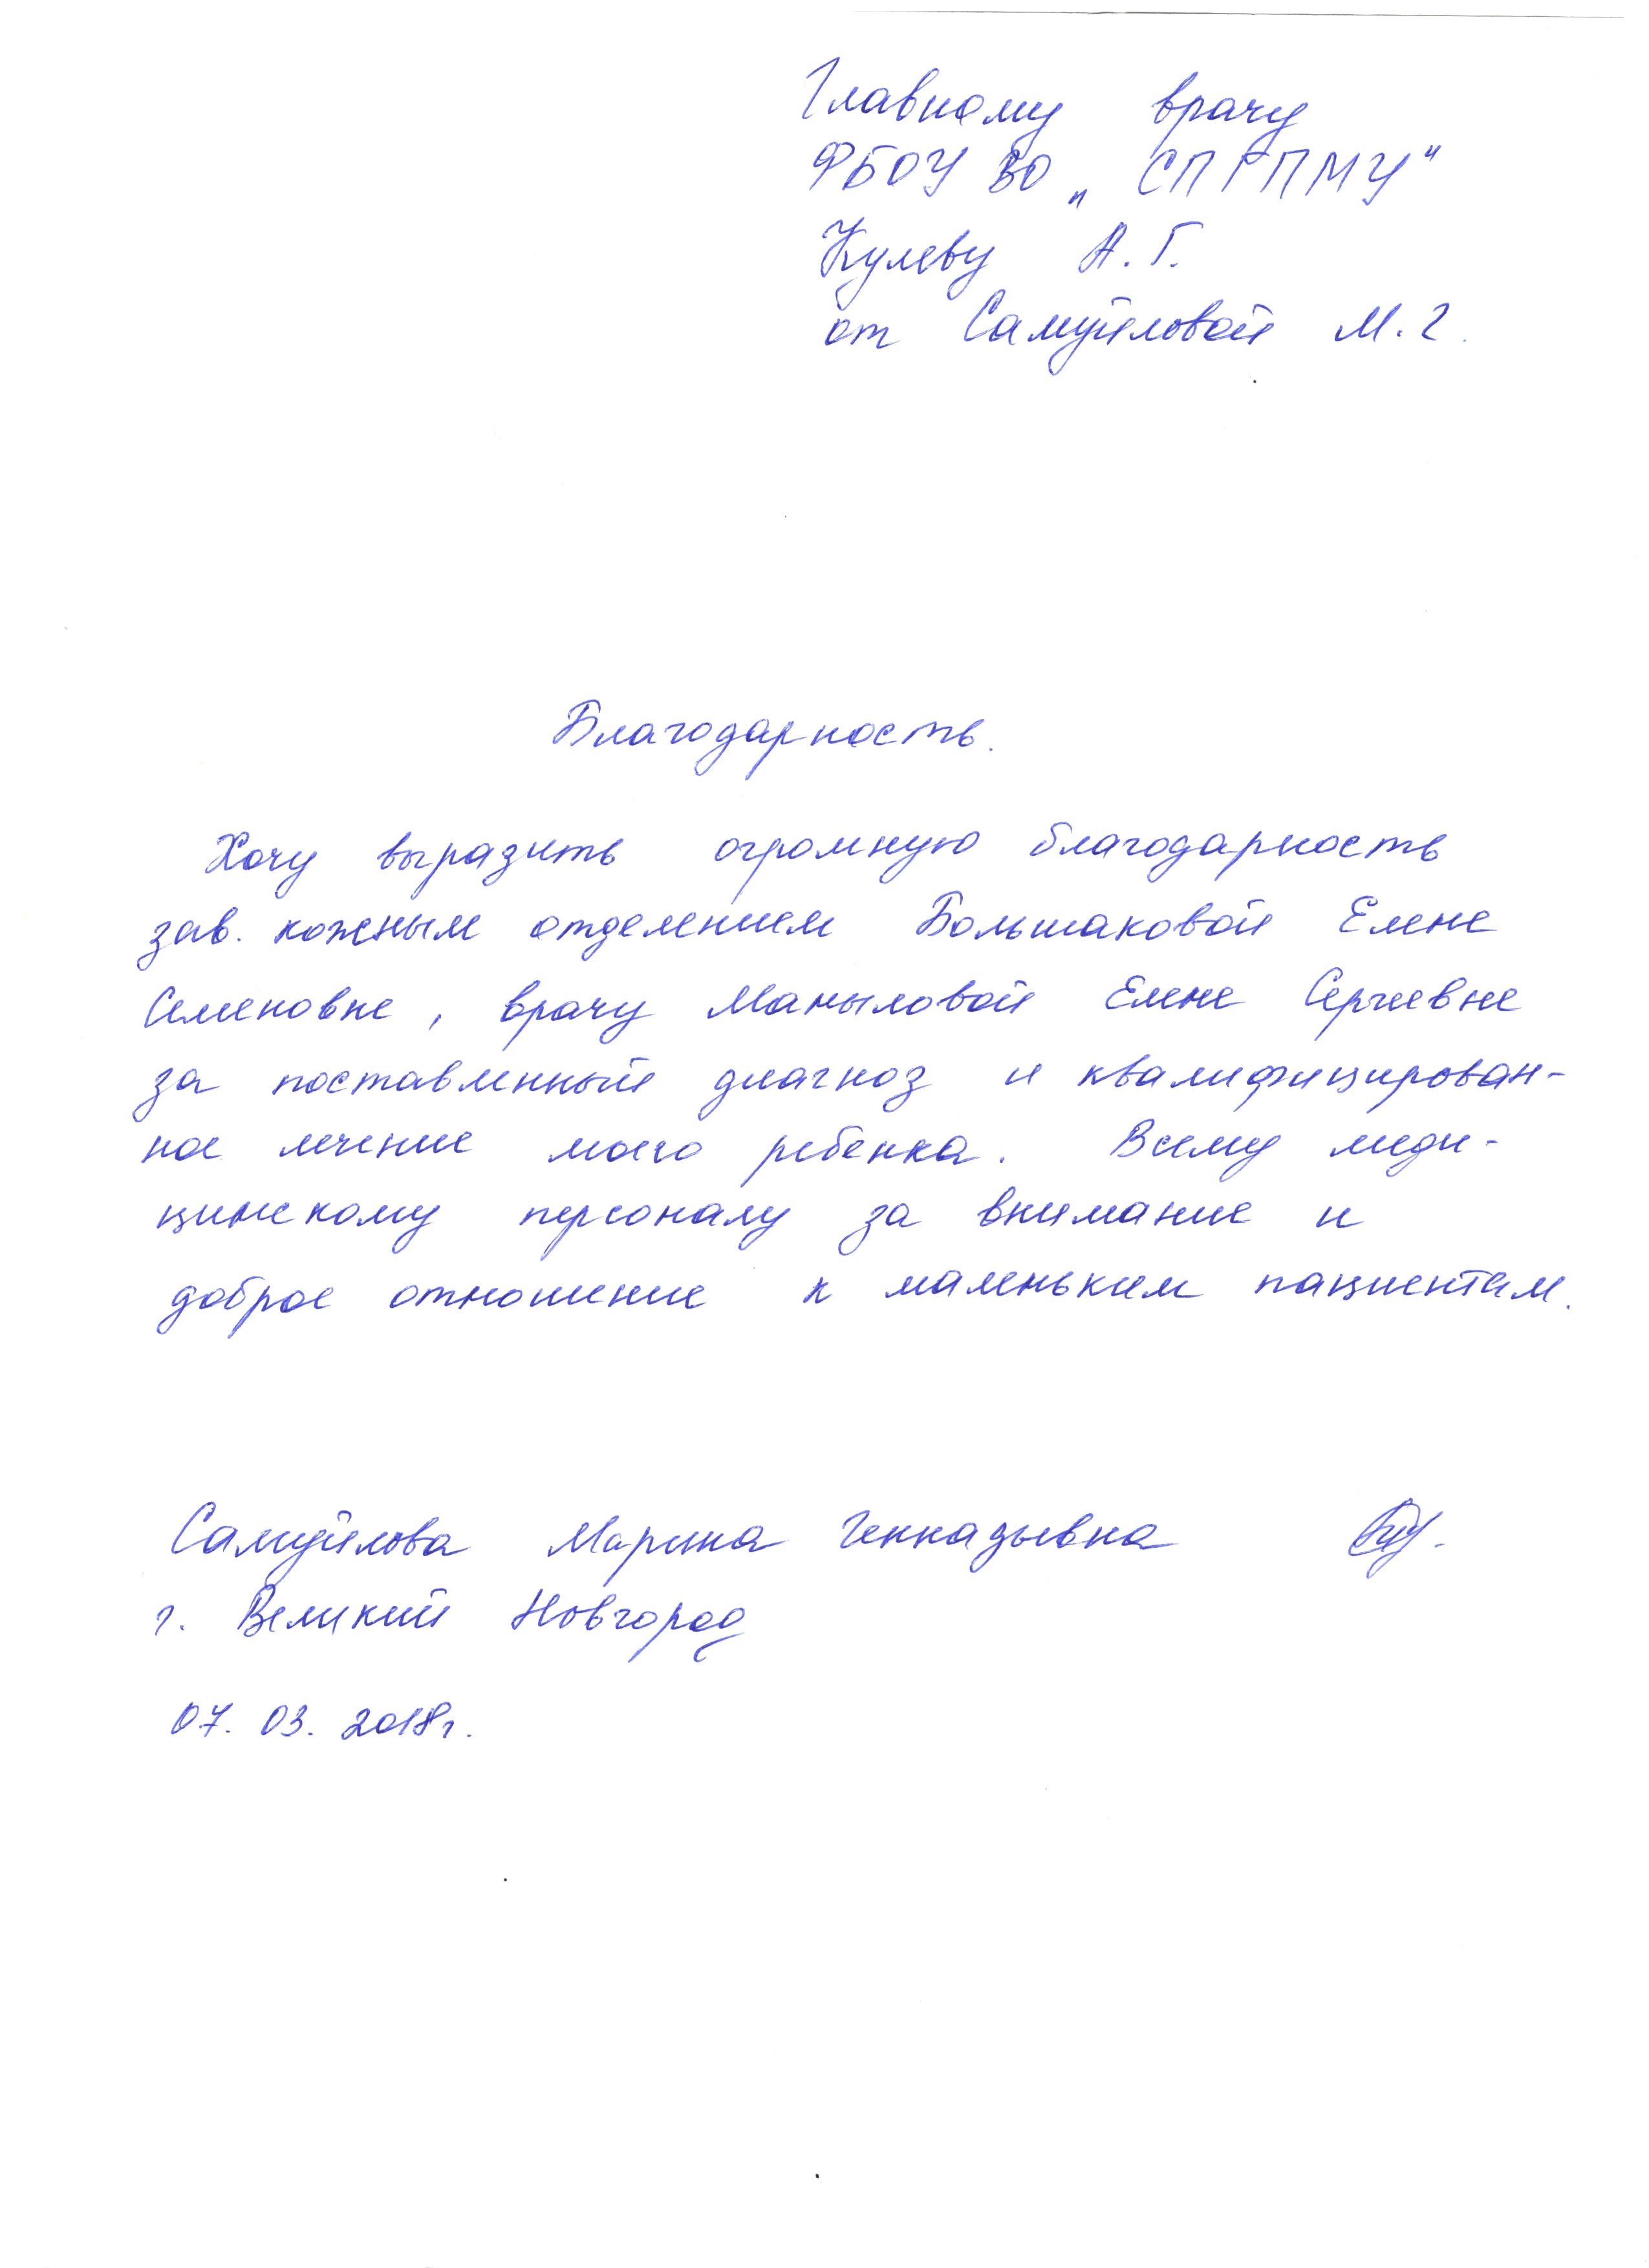 Главному врачу
ФБОУ ВО „СПГПМУ"
Кулеву А.Г.
от Самуйловой М.Г.
Благодарность.
Хочу выразить огромную благодарность
зав. кожным отделением Большаковой Елене
Семеновне, врачу Маныловой Елене Сергеевне
за поставленный диагноз и квалифицирован-
ное лечение моего ребенка. Всему меди-
цинскому персоналу за внимание и
доброе отношение к маленьким пациентам.
Самуйлова Марина Геннадьевна
г. Великий Новгород
07. 03. 2018г.